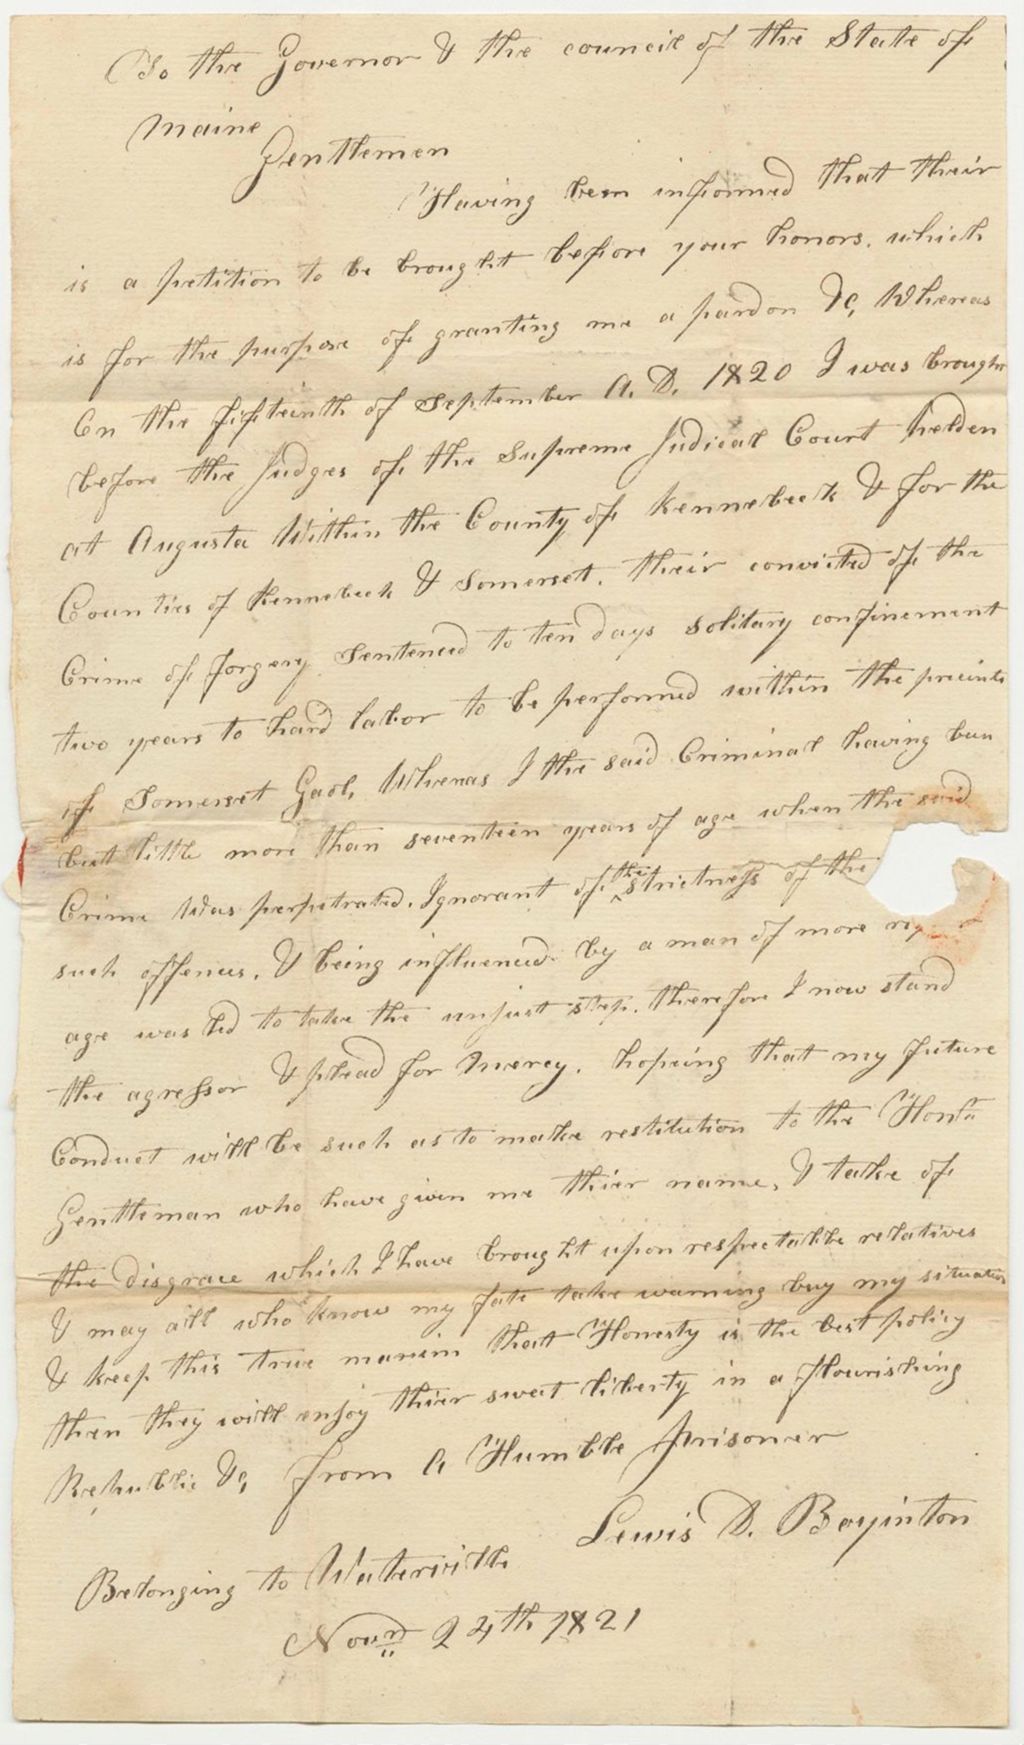 To the Governor & the council of the State of
Maine
Gentlemen
Having been informed that their
is a petition to be brought before your honors. which
is for the purpose of granting me a pardon &c, Whereas
On the fifteinth of September A. D. 1820 I was brought
before the Judges of the Supreme Judical Court helden
at Augusta Within the County of Kennebeck & for the
Counties of Kennebeck & Somerset. their convicted of the
Crime of forgery Sentenced to ten days solitary confinement
two years to hard labor to be performed within the precints
of Somerset Gaol, Whereas I the said Criminal having been
but little more than seventein years of age when the said
Crime Was perpetrated. Ignorant of the strictness of the
such offences. & being influenced by a man of more
age was led to take the unjust step. therefore I now stand
the agressor & plead for Mercy. hopeing that my future
Conduct will be such as to make restitution to the Honbl
Gentleman who have given me thier name, & take of
the disgrace which I have brought upon respectable relatives
& may all who know my fate take warning buy my situation
& keep this true maxim that Honesty is the best policy
then they will enjoy thier sweet liberty in a flourishing
Republic &c, from A Humble Prisoner
Lewis D. Boyinton
Belonging to Waterville
Novr 24th 1821